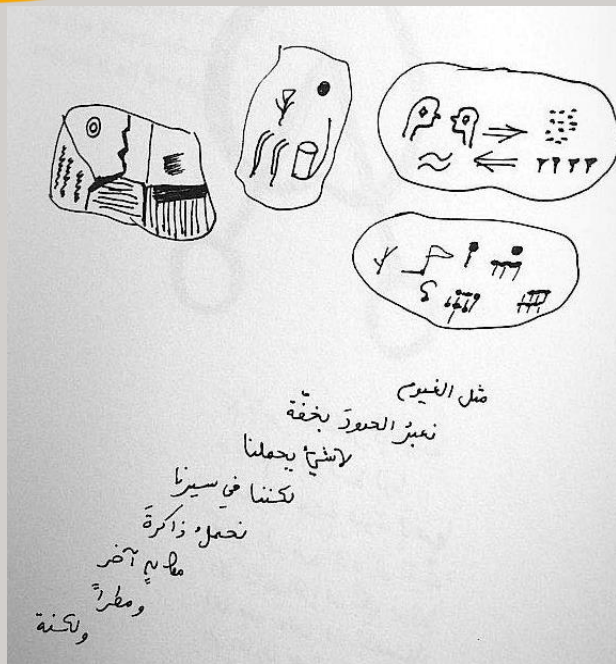 مثل الغيوم
نعبرُ الحدودَ بخفّة
لاشيءَ يحملنا
لكننا في سيرنا
نحملُ ذاكرةَ
مكانٍ آخر
ومطراً
وألسنة